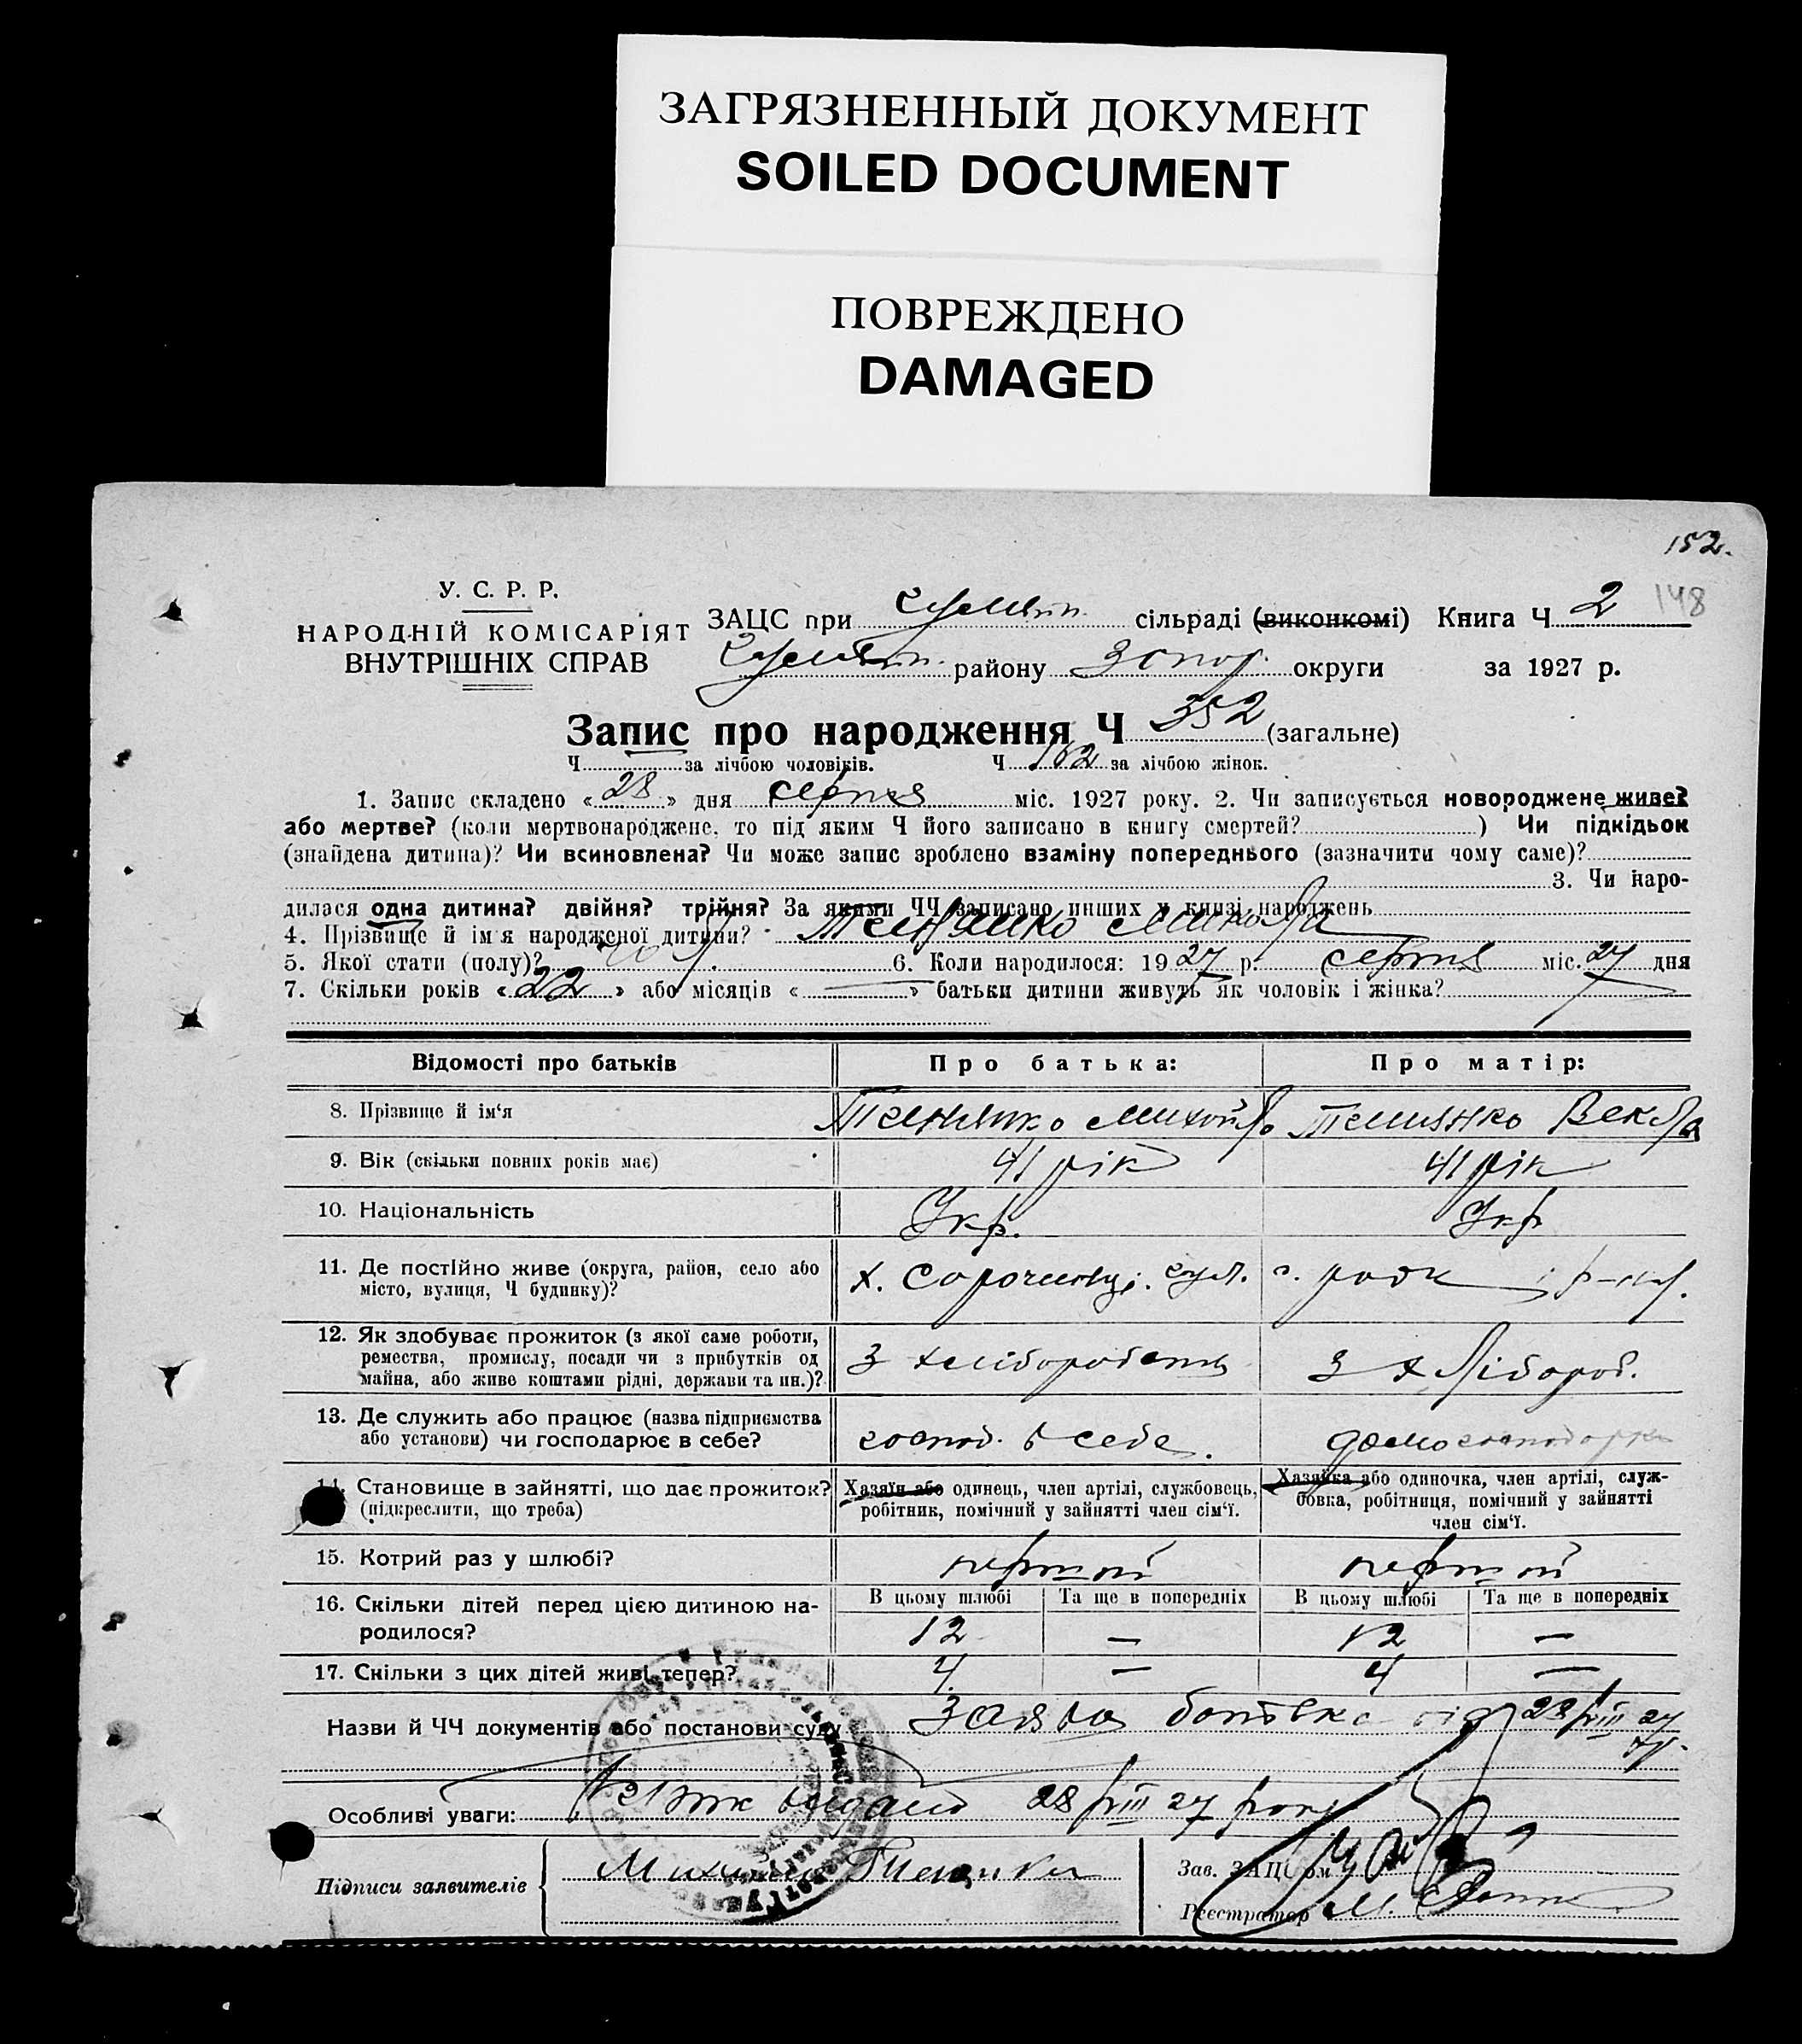 ЗАГРЯЗНЕННЫЙ ДОКУМЕНТ
SOILED DOCUMENT
ПОВРЕЖДЕНО
DAMAGED
152.
148
У. С. Р. Р.
НАРОДНІЙ КОМІСАРІЯТ
ВНУТРІШНІХ СПРАВ
ЗАЦС при сільраді (виконкомі) Книга Ч 2
району округи за 1927 р.
Запис про народження Ч 352 (загальне)
Ч за лічбою чоловіків. Ч 162 за лічбою жінок.
1. Запис складено «28» дня серпня міс. 1927 року. 2. Чи записується новороджене живе?
або мертве? (коли мертвонароджене, то під яким Ч його записано в книгу смертей? ) Чи підкідьок
(знайдена дитина)? Чи всиновлена? Чи може запис зроблено взаміну попереднього (зазначити чому саме)?
3. Чи наро-
дилася одна дитина? двійня? трійня? За якими ЧЧ записано инших у книзі народжень
4. Прізвище й ім'я народженої дитини?
5. Якої статі (полу)? 6. Коли народилося: 1927 р. серпня міс. 27 дня
7. Скільки років «22» або місяців « — » батьки дитини живуть як чоловік і жінка?
Відомості про батьків Про батька: Про матір:
8. Прізвище й ім‘я Векла
9. Вік (скільки повних років має) 41 рік 41 рік
10. Національність Укр. Укр
11. Де постійно живе (округа, район, село або
місто, вулиця, Ч будинку)? х.
12. Як здобуває прожиток (з якої саме роботи,
ремества, промислу, посади чи з прибутків од
майна, або живе коштами рідні, держави та ин.)? З хліборобств З хлібороб.
13. Де служить або працює (назва підприємства
або установи) чи господарює в себе? господ. в себе. домогосподарка
14. Становище в зайнятті, що дає прожиток?
(підкреслити, що треба)
Хазяїн або одинець, член артілі, службовець,
робітник, помічний у зайнятті член сім‘ї.
Хазяйка або одиночка, член артілі, служ-
бовка, робітниця, помічний у зайнятті
член сім‘ї.
15. Котрий раз у шлюбі? перший перший
16. Скільки дітей перед цією дитиною на-
родилося?
В цьому шлюбі Та ще в попередніх В цьому шлюбі Та ще в попередніх
12 — 12 —
17. Скільки з цих дітей живі тепер? 4 — 4 —
Назви й ЧЧ документів або постанови суду Заява батька від 28/VIII 27
Особливі уваги: видано 28/VIII 27 року
Підписи заявителів
Зав. ЗАЦС'ом
Реєстратор М.